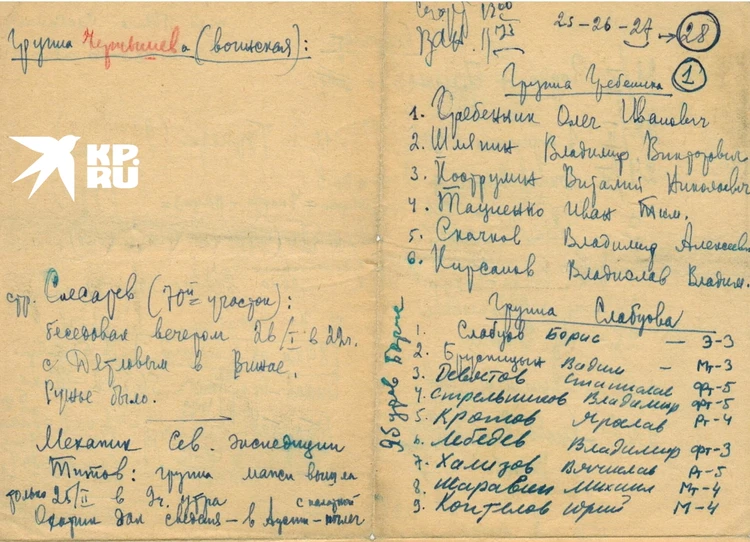 Группа Чернышева (воинская):
KP.RU
стр. Слесарев (70й участок):
беседовал вечером 26/I в 22г.
с Дятловым в Вижае.
Ружье было.
Механик Сев. экспедиции
Титов: группа манси вышла
только 25/II в 9ч. утра
Охотник дал сведения – в Ауспи –
25-26-27 → 28
Группа Гребенника 1
1. Гребенник Олег Иванович
2. Шляпин Владимир Викторович
3. Пострумин Виталий Николаевич
4. Тациенко Иван Тим.
5. Скачков Владимир Алексеевич
6. Кирсанов Владислав Владим.
Группа Слабцова
1. Слабцов Борис — Э-3
2. Брусницын Вадим — Мт-3
3. Девятов Станислав Фт-5
4. Стрельников Владимир Фт-5
5. Кротов Ярослав Рт-4
6. Лебедев Владимир Фт-3
7. Хализов Вячеслав Рт-5
8. Шаравин Михаил Мт-4
9. Коптелов Юрий М-4